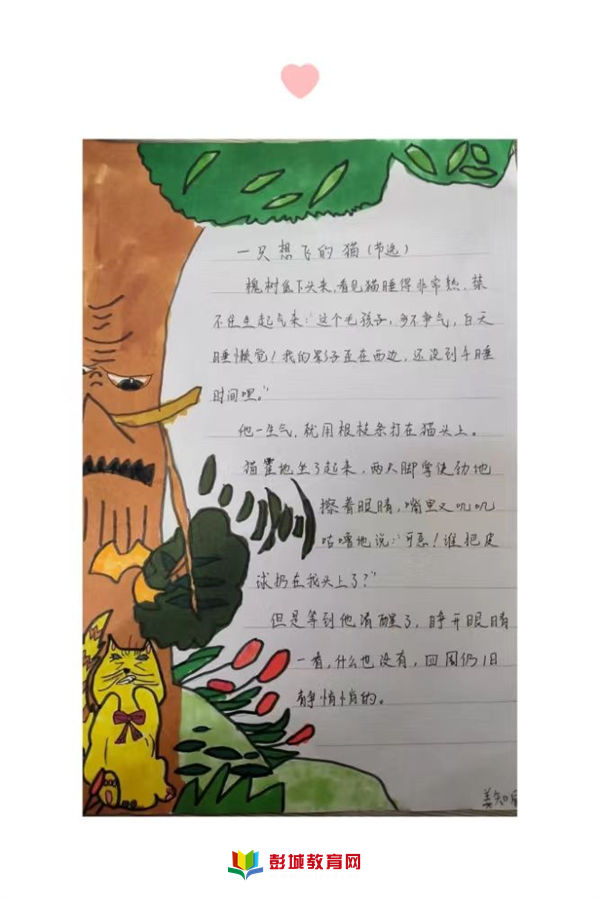 一只想飞的猫（节选）
槐树低下头来，看见猫睡得非常熟，禁
不住生起气来：“这个毛孩子，多不争气，白天
睡懒觉！我的影子正在西边，还没到午睡
时间哩。”
他一生气，就用根枝条打在猫头上。
猫霍地坐了起来，两只脚掌使劲地
擦着眼睛，嘴里又叽叽
咕噜地说：“可恶！谁把皮
球扔在我头上了？”
但是等到他清醒了，睁开眼睛
一看，什么也没有，四周仍旧
静悄悄的。
姜知
彭城教育网